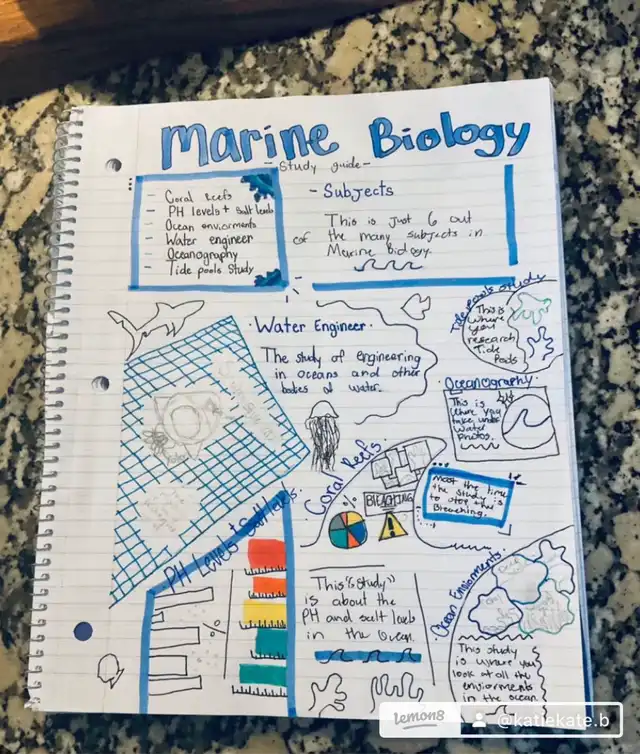 Marine Biology
- Study guide -
- Coral Reefs
- PH levels + Salt levels
- Ocean enviorments
- Water engineer
- Oceanography
- Tide pools Study
- Subjects
This is just 6 out
of the many subjects in
Marine Biology.
Tide pools study
This is
where
you
research
Tide
Pools.
Water Engineer.
The study of engineering
in oceans and other
bodies of water.
Oceanography.
This is
where you
take under
water
photos.
Coral Reefs
%
BLEACHING
!
Most the time
the study is
to stop the
Bleaching.
PH Levels + Salt levels.
%
This "study"
is about the
PH and salt levels
in the Ocean.
Ocean Enviorments.
This study
is where you
look at all the
enviorments
in the ocean.
lemon8
@katiekate.b